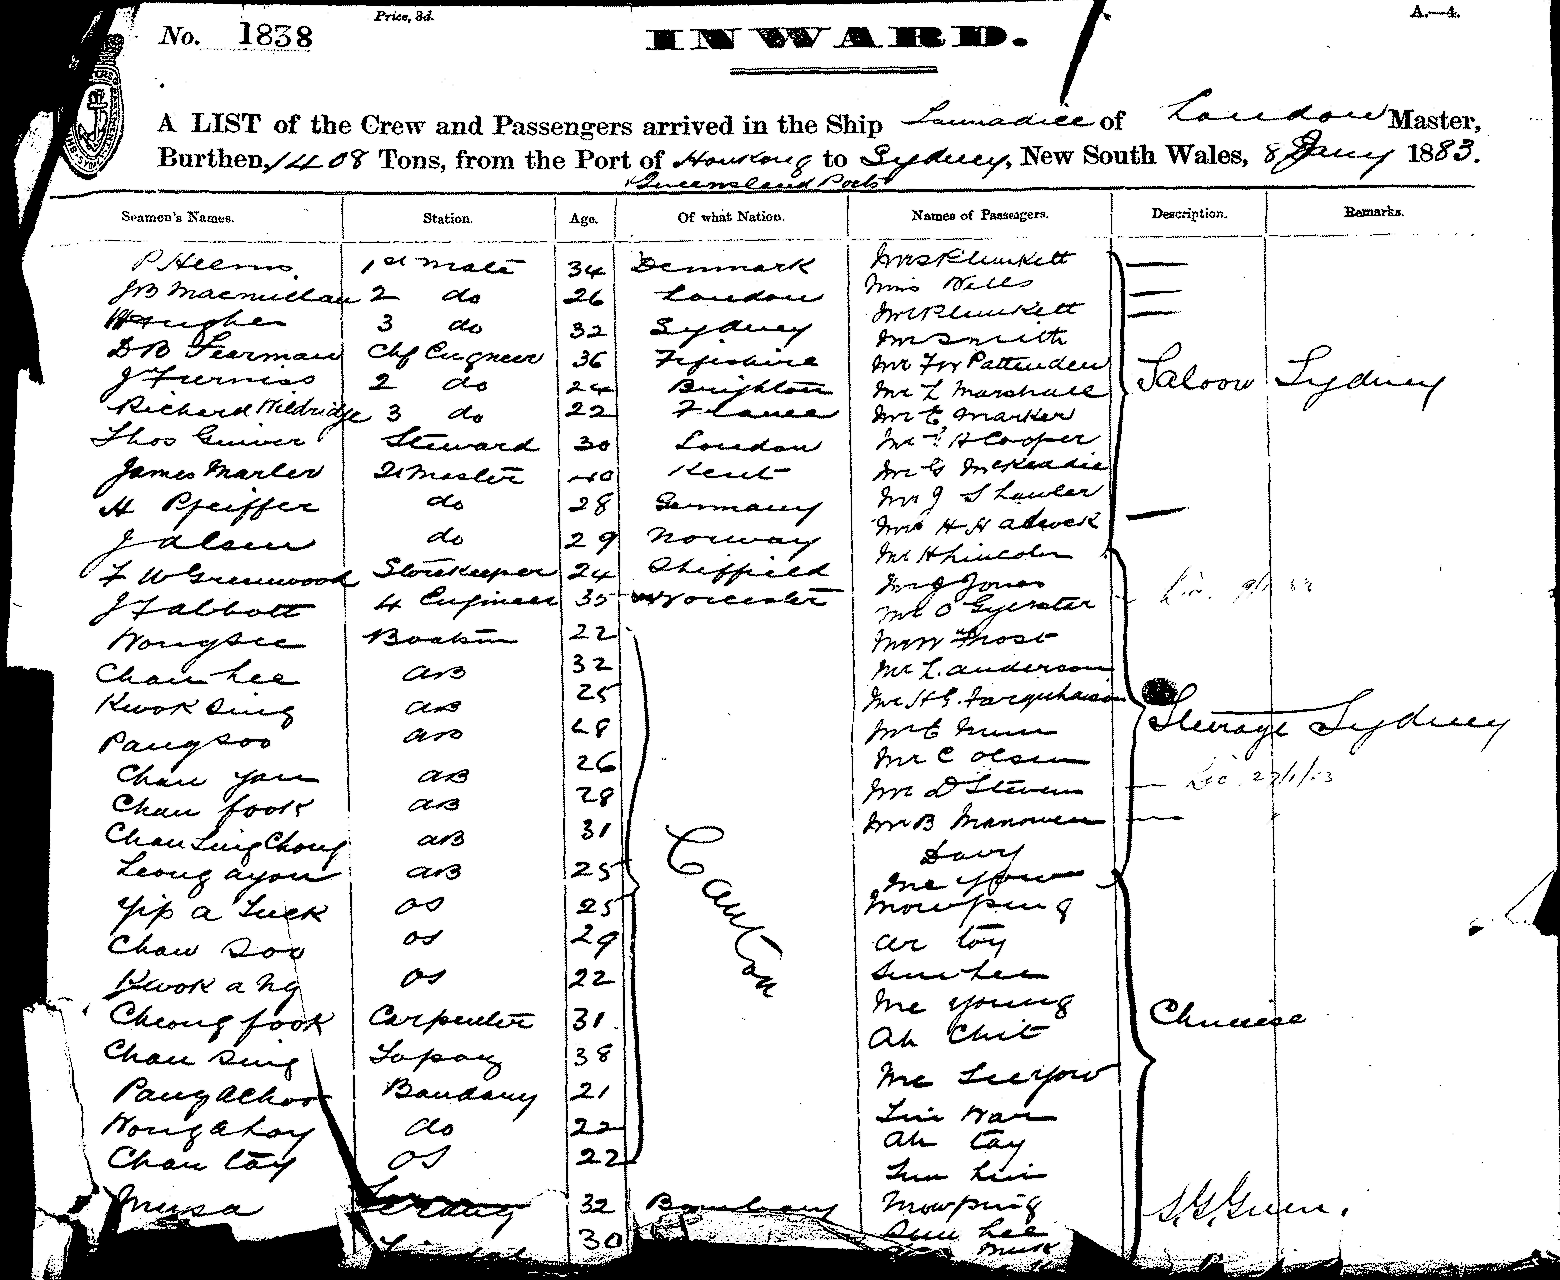 No. 1838
Price, 3d.
A.—4.
INWARD.
A LIST of the Crew and Passengers arrived in the Ship of London Master,
Burthen, 1408 Tons, from the Port of Honkong to Sydney, New South Wales, 8 Jany 1883.
Queensland Ports
Seamen's Names. Station. Age. Of what Nation. Names of Passengers. Description. Remarks.
P Helms. 1st Mate 34 Denmark Mrs Plunkett
JB Macmillan 2 do 26 London Miss Wells
Hughes 3 do 32 Sydney Mr Plunkett
DB Fearman Chf Engneer 36 Fifeshire Mr Smith
J Furniss 2 do 24 Brighton Mr Fox Pattenden
Richard Wildridge 3 do 22 France Mr L Marshall
Saloon Sydney
Thos Guiver Steward 30 London Mr E Marker
James Marler 2r Master 40 Kent Mr H Cooper
H Pfeiffer do 28 Germany Mr G McKendie
J Olsen do 29 Norway Mr J S Lawler
F W Greenwood Storekeeper 24 Sheffield Mrs H Hadwick
J F Abbott 4 Engineer 35 Worcester Mr H Lincoln
Wongsee 22 Mr J Jones
Chan hee AB 32 Mr O Gyerster
Kwok Sing AB 25 Mr W Frost
Pang Soo AB 28 Mr L. Anderson
Chan you AB 26 Mr H G. Farquharson
Chan fook AB 28 Mr E Nunn
Steerage Sydney
Chan Sing Chong AB 31 Mr C Olsen
Leong ayou AB 25 Mr D Stevens
Yip a Luck OS 25 Mr B
Chan Soo OS 29 Davy
Kwok a Ng OS 22 Me You
Canton
Cheong fook Carpenter 31 Mowping
Chan Sing 38 Ar toy
Pang Achoo 21 Sun hee
Wong Ahoy do 22 Me Young
Chan tay OS 22 Ah Chit
Chinese
Musa Serang 32 Bombay Me Seeyow
30 Lin War
Ah tay
Sun hin
Mowping
Sun hee